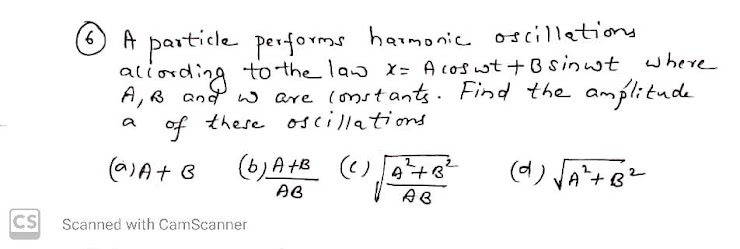 6 A particle performs harmonic oscillations
according to the law x = A cos wt + B sin wt where
A, B and w are constants. Find the amplitude
a of these oscillations
(a) A + B (b) A + B / AB (c) √(A² + B² / AB) (d) √(A² + B²)
CS Scanned with CamScanner